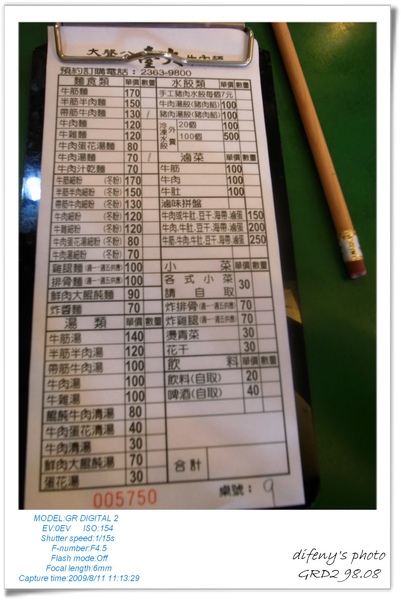 預約訂購電話：2363-9800
麵食類 單價 數量
牛筋麵 170
半筋半肉麵 150
帶筋牛肉麵 130 /
牛肉麵 120
牛雜麵 120
牛肉蛋花湯麵 80
牛肉湯麵 70 /
牛肉汁乾麵 70
牛筋細粉 (冬粉) 170
半筋半肉細粉 (冬粉) 150
帶筋牛肉細粉 (冬粉) 130
牛肉細粉 (冬粉) 120
牛雜細粉 (冬粉) 120
牛肉蛋花湯細粉 (冬粉) 80
牛肉湯細粉 (冬粉) 70
雞腿麵 (週一~週五供應) 100
排骨麵 (週一~週五供應) 100
鮮肉大餛飩麵 90
炸醬麵 70
湯類 單價 數量
牛筋湯 140
半筋半肉湯 120
帶筋牛肉湯 100
牛肉湯 100
牛雜湯 100
餛飩牛肉清湯 80
牛肉蛋花清湯 40
牛肉清湯 30
鮮肉大餛飩湯 70
蛋花湯 30
水餃類 單價 數量
手工豬肉水餃每個7元
牛肉湯餃(豬肉餡) 100
豬肉湯餃(豬肉餡) 100
冷凍水餃 外賣 20個 100
100個 500
滷菜 單價 數量
牛筋 100
牛肉 100
牛肚 100
滷味拼盤
牛肉或牛肚,豆干,海帶,滷蛋 150
牛肉,牛肚,豆干,海帶,滷蛋 200
牛筋,牛肉,牛肚,豆干,海帶,滷蛋 250
小菜 單價 數量
各式小菜 請自取 30
炸排骨 (週一~週五供應) 70
炸雞腿 (週一~週五供應) 70
燙青菜 30
花干 30
飲料 單價 數量
飲料(自取) 20
啤酒(自取) 40
合計
005750
桌號： 9
MODEL:GR DIGITAL 2
EV:0EV ISO:154
Shutter speed:1/15s
F-number:F4.5
Flash mode:Off
Focal length:6mm
Capture time:2009/8/11 11:13:29
difeny's photo
GRD2 98.08